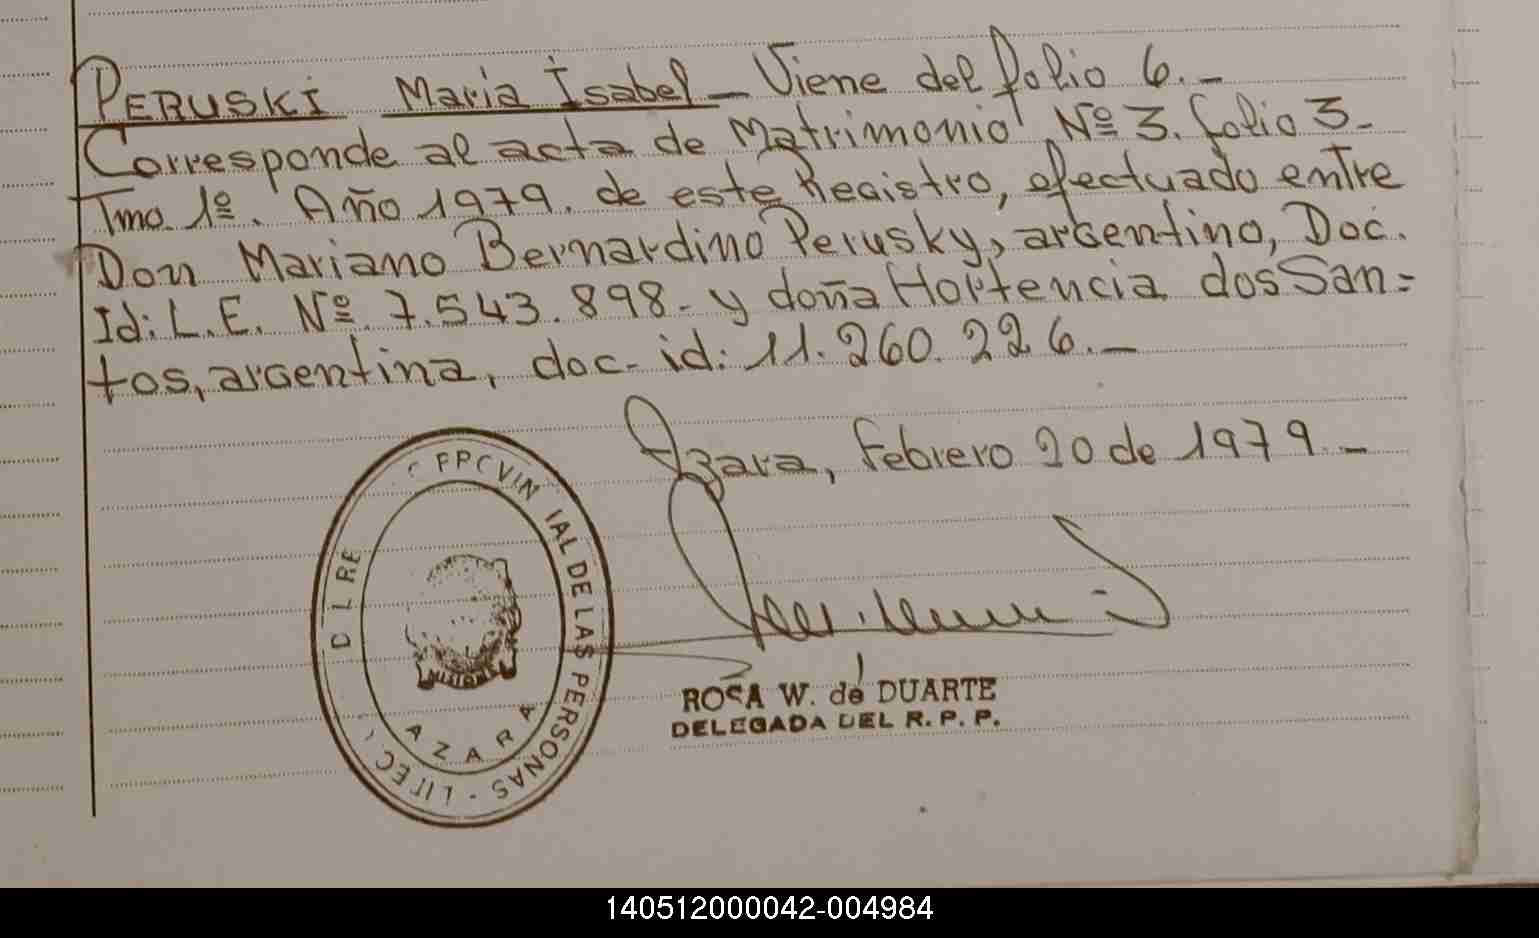 PERUSKI Maria Isabel - Viene del folio 6.-
Corresponde al acta de Matrimonio Nº 3. folio 3-
Tmo. 1º. Año 1979. de este Registro, efectuado entre
Don Mariano Bernardino Perusky, argentino, Doc.
Id: L.E. Nº 7.543.898- y doña Hortencia dos San=
tos, argentina, doc. id: 11.260.226.-
Azara, Febrero 20 de 1979.-
VIN IAL DE LAS PERSONAS -
D L RE
AZARA
ROSA W. de DUARTE
DELEGADA DEL R. P. P.
140512000042-004984